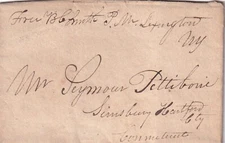 Free B Smith P.M. Lexington
Ny
Mr Seymour Pettibone
Simsbury Hartford
Cty
Connecticut